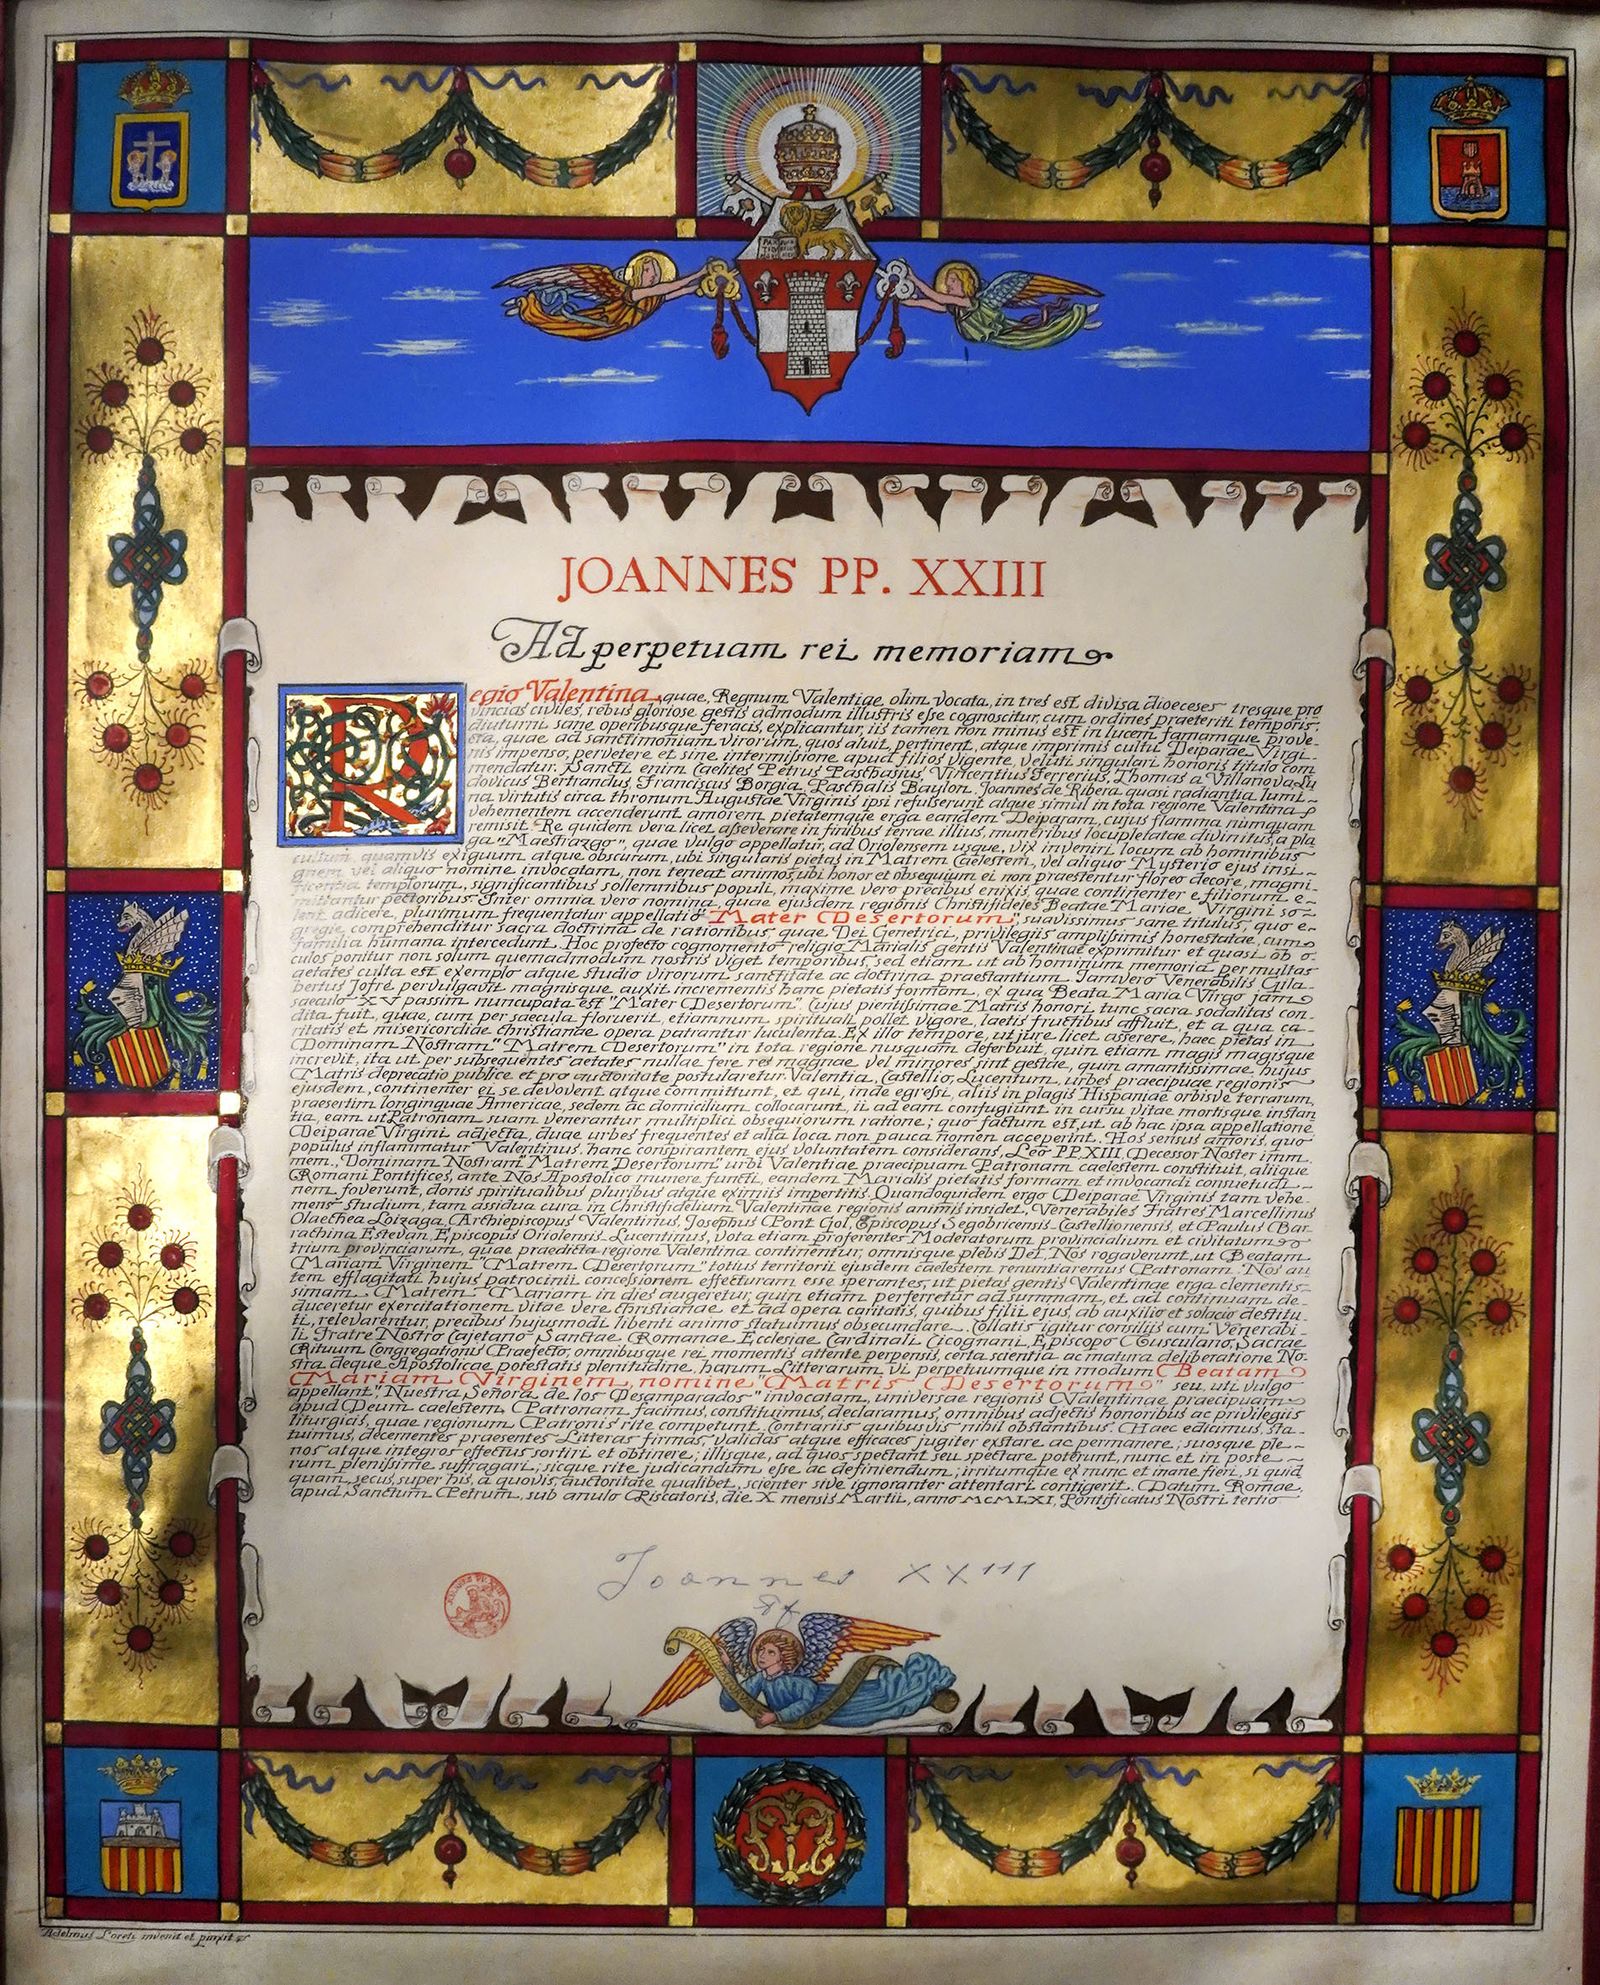 JOANNES PP. XXIII
Ad perpetuam rei memoriam
Regio Valentina, quae, Regnum Valentiae olim vocata, in tres est divisa dioeceses tresque pro
vincias civiles, rebus gloriose gestis admodum illustris esse cognoscitur, cum ordines praeteriti temporis
diuturni, sane operibusque feracis, explicantur, iis tamen non minus est in lucem famamque prove-
cta, quae ad sanctimoniam virorum, quos aluit, pertinent, atque imprimis cultu Deiparae Virgi-
nis impenso, pervetere et sine intermissione apud filios vigente, veluti singulari honoris titulo com
mendatur. Sancti enim Caelites Petrus Paschasius, Vincentius Ferrerius, Thomas a Villanova, Lu
dovicus Bertrandus, Franciscus Borgia, Paschalis Baylon, Joannes de Ribera quasi radiantia lumi-
na virtutis circa thronum Augustae Virginis ipsi refulserunt atque simul in tota regione Valentina
vehementem accenderunt amorem pietatemque erga eandem Deiparam, cujus flamma numquam
remisit. Re quidem vera licet asseverare in finibus terrae illius, muneribus locupletatae divinitus, a pla
ga "Maestrazgo", quae vulgo appellatur, ad Oriolensem usque, vix inveniri locum ab hominibus
cultum, quamvis exiguum atque obscurum, ubi singularis pietas in Matrem Caelestem, vel aliquo Mysterio ejus insi-
gnem vel aliquo nomine invocatam, non teneat animos, ubi honor et obsequium ei non praestentur floreo decore, magni-
ficentia templorum, significantibus sollemnibus populi, maxime vero precibus enixis, quae continenter e filiorum e-
mittantur pectoribus. Inter omnia vero nomina, quae ejusdem regionis Christifideles Beatae Mariae Virgini so-
lent adicere, plurimum frequentatur appellatio "Mater Desertorum", suavissimus sane titulus, quo e-
gregie comprehenditur sacra doctrina de rationibus, quae Dei Genetrici, privilegiis amplissimis honestatae, cum
familia humana intercedunt. Hoc profecto cognomento religio Marialis gentis Valentinae exprimitur et quasi ob o-
culos ponitur non solum quemadmodum nostris viget temporibus, sed etiam ut ab hominum memoria per multas
aetates culta est exemplo atque studio virorum sanctitate ac doctrina praestantium. Jamvero Venerabilis Gila-
bertus Jofré pervulgavit magnisque auxit incrementis hanc pietatis formam, ex qua Beata Maria Virgo jam
saeculo XV passim nuncupata est "Mater Desertorum". Cujus pientissimae Matris honori tunc sacra sodalitas con-
dita fuit, quae, cum per saecula floruerit, etiamnum spirituali pollet vigore, laetis fructibus affluit, et a qua ca-
ritatis et misericordiae christianae opera patrantur luculenta. Ex illo tempore, ut jure licet asserere, haec pietas in
Dominam Nostram "Matrem Desertorum" in tota regione nusquam deferbuit, quin etiam magis magisque
increvit, ita ut per subsequentes aetates nullae fere res magnae vel minores sint gestae, quin amantissimae hujus
Matris deprecatio publice et pro auctoritate postularetur. Valentia, Castellio, Lucentum, urbes praecipuae regionis
ejusdem, continenter ei se devovent atque committunt, et qui, inde egressi, aliis in plagis Hispaniae orbisve terrarum,
praesertim longinquae Americae, sedem ac domicilium collocarunt, ii ad eam confugiunt in cursu vitae mortisque instan
tia, eam ut Patronam suam venerantur multiplici obsequiorum ratione; quo factum est, ut ab hac ipsa appellatione
Deiparae Virgini adjecta, duae urbes frequentes et alia loca non pauca nomen acceperint. Hos sensus amoris, quo
populus inflammatur Valentinus, hanc conspirantem ejus voluntatem considerans, Leo PP. XIII, Decessor Noster imm.
mem., Dominam Nostram "Matrem Desertorum" urbi Valentiae praecipuam Patronam caelestem constituit, aliique
Romani Pontifices, ante Nos Apostolico munere functi, eandem Marialis pietatis formam et invocandi consuetudi-
nem foverunt, donis spiritualibus pluribus atque eximiis impertitis. Quandoquidem ergo Deiparae Virginis tam vehe-
mens studium, tam assidua cura in Christifidelium Valentinae regionis animis insidet, Venerabiles Fratres Marcellinus
Olaechea Loizaga, Archiepiscopus Valentinus, Josephus Pont Gol, Episcopus Segobricensis-Castellionensis, et Paulus Bar-
rachina Estevan, Episcopus Oriolensis-Lucentinus, vota etiam proferentes Moderatorum provincialium et civitatum
trium provinciarum, quae praedicta regione Valentina continentur, omnisque plebis Dei, Nos rogaverunt, ut Beatam
Mariam Virginem "Matrem Desertorum" totius territorii ejusdem caelestem renuntiaremus Patronam. Nos au
tem efflagitati hujus patrocinii concessionem effecturam esse sperantes, ut pietas gentis Valentinae erga clementis-
simam Matrem Mariam in dies augeretur, quin etiam perferretur ad summam, et ad continuam de-
duceretur exercitationem vitae vere christianae et ad opera caritatis, quibus filii ejus ab auxilio et solacio destitu-
ti, relevarentur, precibus hujusmodi libenti animo statuimus obsecundare. Collatis igitur consiliis cum Venerabi-
li Fratre Nostro Cajetano Sanctae Romanae Ecclesiae Cardinali Cicognani, Episcopo Tusculano, Sacrae
Rituum Congregationis Praefecto, omnibusque rei momentis attente perpensis, certa scientia ac matura deliberatione No-
stra deque Apostolicae potestatis plenitudine, harum Litterarum vi perpetuumque in modum Beatam
Mariam Virginem, nomine "Matris Desertorum" seu, uti vulgo
appellant, "Nuestra Señora de los Desamparados" invocatam, universae regionis Valentinae praecipuam
apud Deum caelestem Patronam facimus, constituimus, declaramus, omnibus adjectis honoribus ac privilegiis
liturgicis, quae regionum Patronis rite competunt. Contrariis quibusvis nihil obstantibus. Haec edicimus, sta-
tuimus, decernentes praesentes Litteras firmas, validas atque efficaces jugiter exstare ac permanere; suosque ple-
nos atque integros effectus sortiri et obtinere; illisque, ad quos spectant seu spectare poterunt, nunc et in poste-
rum plenissime suffragari; sicque rite judicandum esse ac definiendum; irritumque ex nunc et inane fieri, si quid
quam secus, super his, a quovis, auctoritate qualibet, scienter sive ignoranter attentari contigerit. Datum Romae,
apud Sanctum Petrum, sub anulo Piscatoris, die X mensis Martii, anno MCMLXI, Pontificatus Nostri tertio
Joannes XXIII
Adelmus Loreti invenit et pinxit